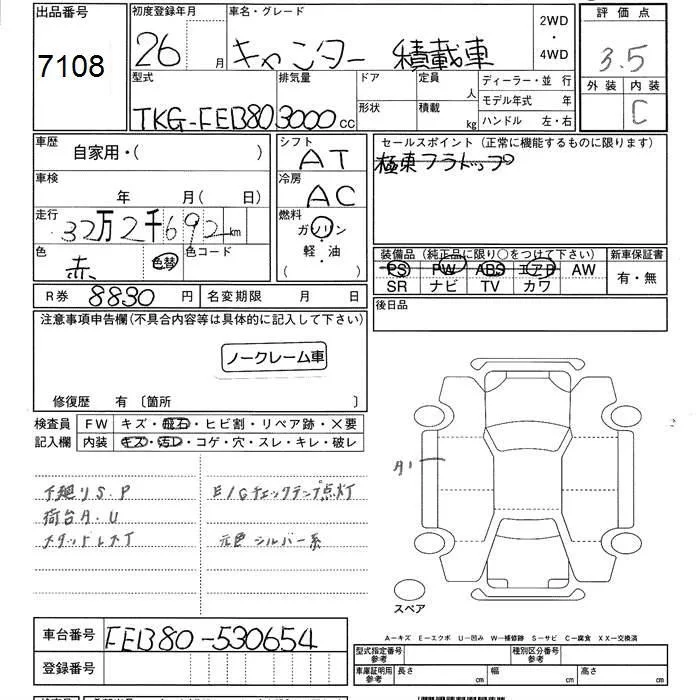 出品番号
7108
初度登録年月
26 月
車名・グレード
キャンター 積載車
2WD
・
4WD
評価点
3.5
外装 内装
C
型式
TKG-FEB80
排気量
3000cc
ドア
形状
定員
人
積載
kg
ディーラー・並 行
モデル年式 年
ハンドル 左・右
車歴
自家用・( )
車検
年 月(日)
走行
32万2千692km
色
赤 色替
色コード
シフト
AT
冷房
AC
燃料
ガソリン
軽・油
( )
セールスポイント(正常に機能するものに限ります)
極東フラトップ
装備品(純正品に限り○をつけて下さい)
PS PW ABS エアB AW
SR ナビ TV カワ
新車保証書
有・無
R券 8830 円
名変期限 月 日
後日品
注意事項申告欄(不具合内容等は具体的に記入して下さい)
ノークレーム車
修復歴 有〔箇所 〕
検査員
記入欄
FW キズ・飛石・ヒビ割・リペア跡・×要
内装 キズ・汚レ・コゲ・穴・スレ・キレ・破レ
下廻りS.P
荷台A.U
スタッドレスT
E/Gチェックランプ点灯
元色 シルバー系
A1
スペア
車台番号
FEB80-530654
登録番号
A−キズ E−エクボ U−凹み W−補修跡 S−サビ C−腐食 XX−交換済
型式指定番号
参考
種別区分番号
参考
車庫証明用
参考
長さ cm
幅 cm
高さ cm